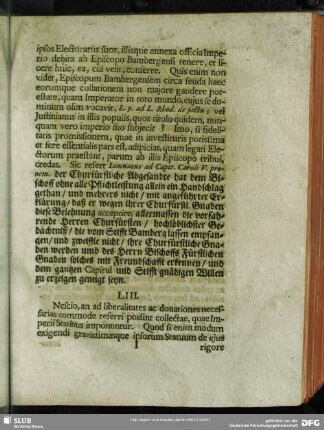 ipsos Electoratus suos, illisque annexa officia Impe-
rio debita ab Episcopo Bambergensi tenere, et li-
cere huic, ea, cui velit, conferre. Quis enim non
videt, Episcopum Bambergensem circa feuda haec
eorumque collationem non majore gaudere pot-
estate, quam Imperator in toto mundo, cujus se do-
minum olim vocavit, L. 9. ad L. Rhod. de jactu; vel
Justinianus in illis populis, quos titulo quidem, nun-
quam vero imperio suo subjecit? Imo, si fideli-
tatis promissionem, quae in investituris potissima
et fere essentialis pars est, adspicias, quam legati Ele-
ctorum praestant, parum ab illis Episcopo tribui,
credas. Sic refert Limnaeus ad Capit. Caroli V. pro-
oem. der Churfürstliche Abgesandte hat dem Bi-
schoff ohne alle Pflichtleistung allein ein Handschlag
gethan/ und mehrers nicht/ mit angeführter Er-
klärung/ daß er wegen ihrer Churfürstl. Gnaden
diese Belehnung acceptire, allermassen die vorfah-
rende Herren Churfürsten/ hochlöblichster Ge-
dächtniß/ die vom Stifft Bamberg lassen empfan-
gen/ und zweiffle nicht/ ihre Churfürstliche Gna-
den werden und des Herrn Bischoffs Fürstlichen
Gnaden solches mit Freundschafft erkennen/ und
dem gantzen Capitul und Stifft gnädigen Willen
zu erzeigen geneigt seyn.
LIII.
Nescio, an ad liberalitates ac donationes neces-
sarias commode referri possint collectae, quae Im-
perii Statibus imponuntur. Quod si enim modum
exigendi gravissimasque ipsorum Statuum de ejus
I rigore
SLUB
Wir führen Wissen.
gefördert von der
Deutschen Forschungsgemeinschaft
DFG